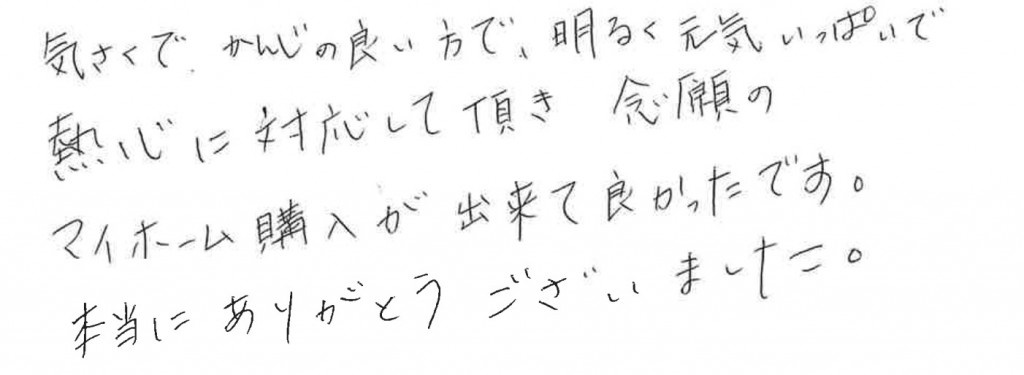 気さくで、かんじの良い方で、明るく元気いっぱいで
熱心に対応して頂き 念願の
マイホーム購入が出来て良かったです。
本当にありがとうございました。